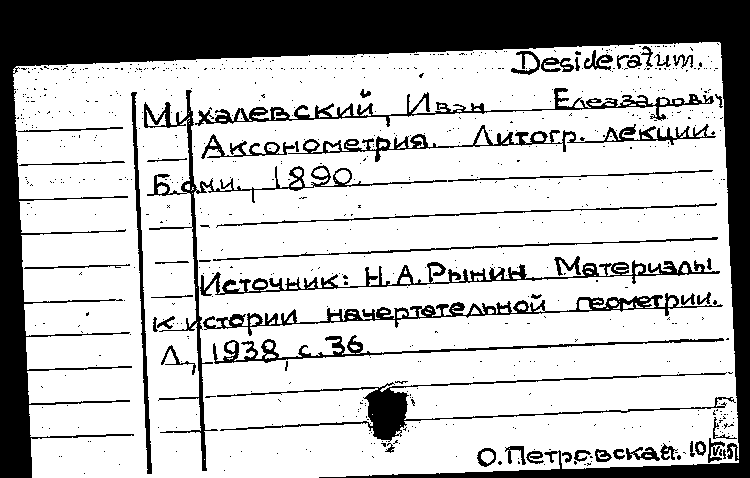 Desideratum.
Михалевский, Иван Елеазарович
Аксонометрия. Литогр. лекции.
Б.ом.и., 1890.
Источник: Н.А.Рынин. Материалы
к истории начертательной геометрии.
Л., 1938, с.36.
О.Петровская. 10